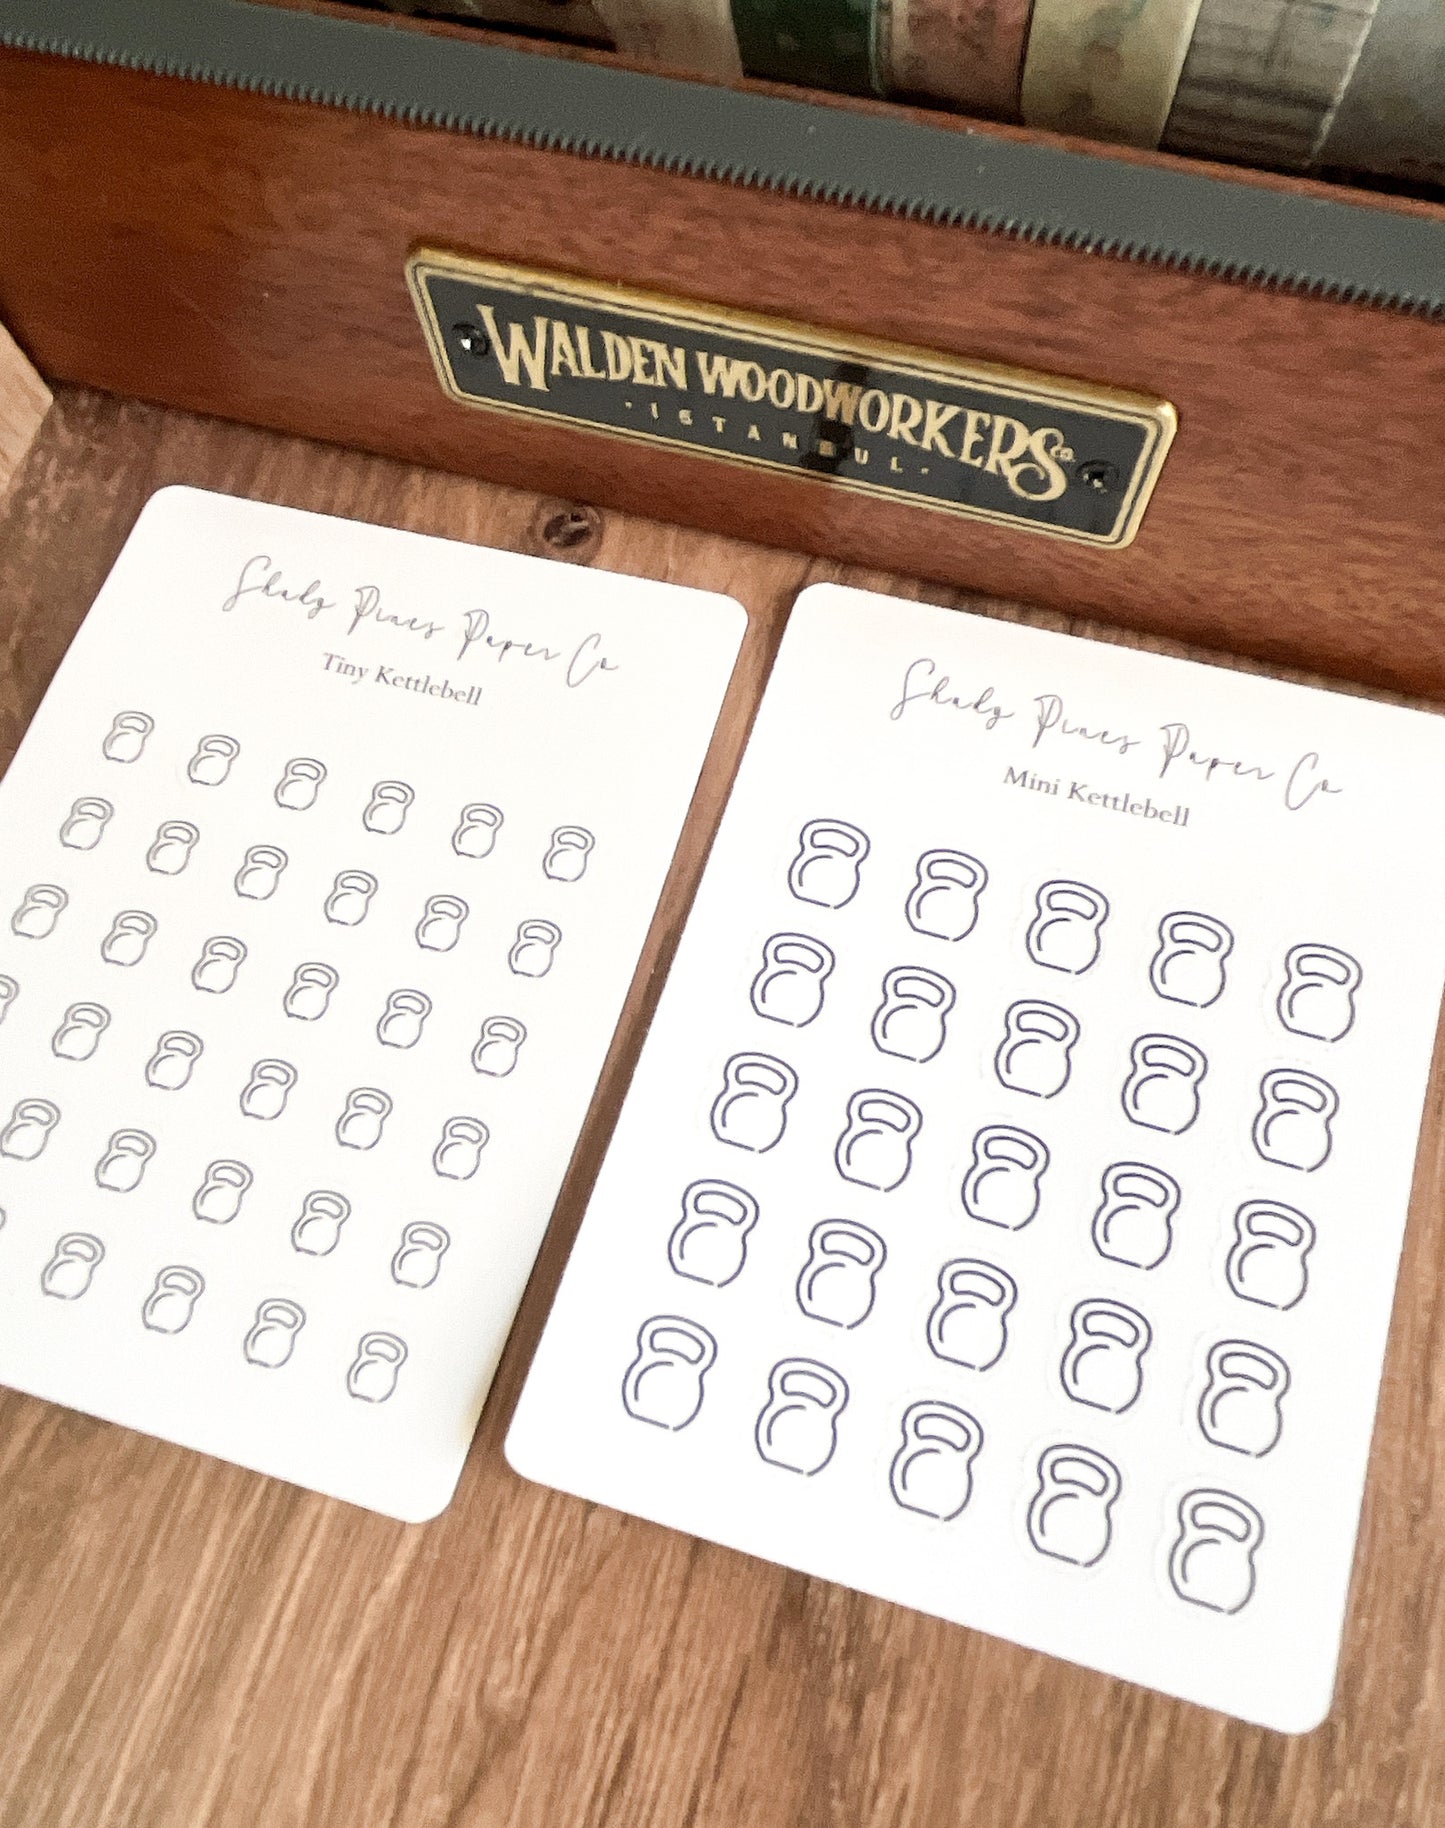 WALDEN WOODWORKERS Co.
· ISTANBUL ·
Shady Pines Paper Co
Tiny Kettlebell
Shady Pines Paper Co
Mini Kettlebell